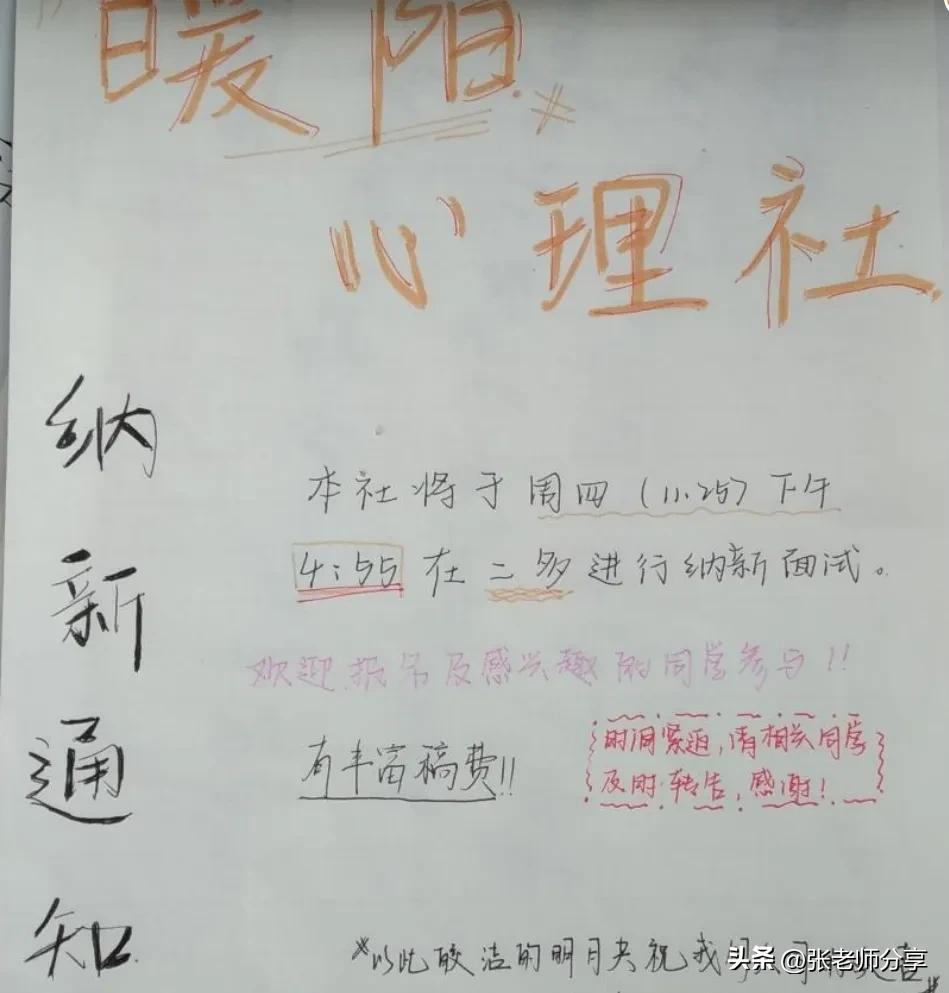 暖阳
心理社
纳新通知
本社将于周四(11.25)下午
4:55在二多进行纳新面试。
欢迎报名及感兴趣的同学参与!!
有丰富稿费!!
时间紧迫,请相关同学
及时转告,感谢!
*以此皎洁的明月共祝我们
头条 @张老师分享